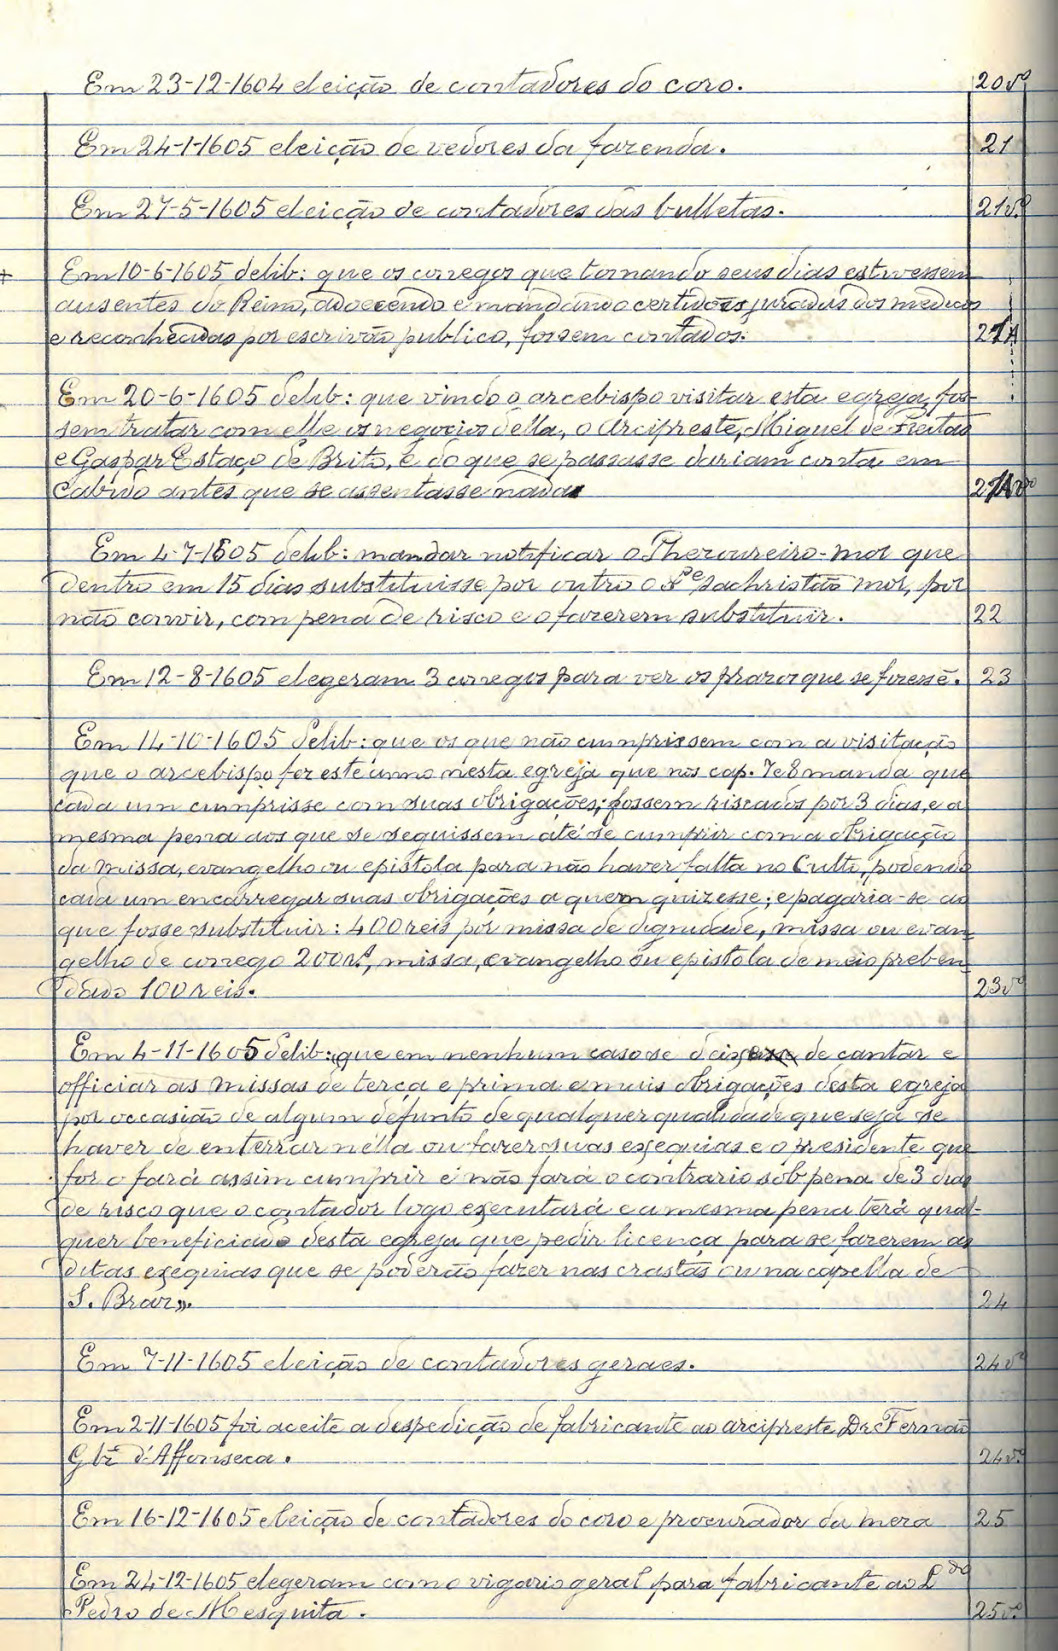 Em 23-12-1604 eleição de contadores do coro. 20vº
Em 24-1-1605 eleição de vedores da fazenda. 21
Em 27-5-1605 eleição de contadores das bulletas. 21vº
Em 10-6-1605 delib: que os conegos que tomando seus dias estivessem
ausentes do Reino, adoecendo e mandando certidões juradas dos medicos
e reconhecidas por escrivão publico, fossem contados. 21A
Em 20-6-1605 delib: que vindo o arcebispo visitar esta egreja, fos-
sem tratar com elle os negocios della, o Arcipreste, Miguel de Freitas
e Gaspar Estaço de Brito, e do que se passasse dariam conta em
Cabido antes que se assentasse nada 21Avº
Em 4-7-1605 delib: mandar notificar o Thezoureiro-mor que
dentro em 15 dias substituisse por outro o Pe sachristão mor, por
não convir, com pena de risco e o fazerem substituir. 22
Em 12-8-1605 elegeram 3 conegos para ver os prazos que se fizessẽ. 23
Em 14-10-1605 delib: que os que não cumprissem com a visitação
que o arcebispo fez este anno nesta egreja que nos cap. 7 e 8 manda que
cada um cumprisse com suas obrigações; fossem riscados por 3 dias, e a
mesma pena aos que se seguissem até se cumprir com a obrigação
da missa, evangelho ou epistola para não haver falta no Culto, podendo
cada um encarregar suas obrigações a quem quizesse; e pagaria-se ao
que fosse substituir: 400 reis por missa de dignidade, missa ou evan-
gelho de conego 200 rs, missa, evangelho ou epistola de meio preben-
dado 100 reis. 23vº
Em 4-11-1605 delib: «que em nenhum caso se deixe de cantar e
officiar as missas de terça e prima e mais obrigações desta egreja
por occasião de algum defunto de qualquer qualidade que seja se
haver de enterrar nella ou fazer suas exequias e o presidente que
for o fará assim cumprir e não fará o contrario sob pena de 3 dias
de risco que o contador logo executará e a mesma pena terá qual-
quer beneficiado desta egreja que pedir licença para se fazerem as
ditas exequias que se poderão fazer nas crastas ou na capella de
S. Braz». 24
Em 7-11-1605 eleição de contadores geraes. 24vº
Em 2-11-1605 foi aceite a despedição de fabricante ao arcipreste Dr. Fernão
Glz d'Affonseca. 24vº
Em 16-12-1605 eleição de contadores do coro e procurador da meza 25
Em 24-12-1605 elegeram com o vigario geral para fabricante ao Ldo
Pedro de Mesquita. 25vº